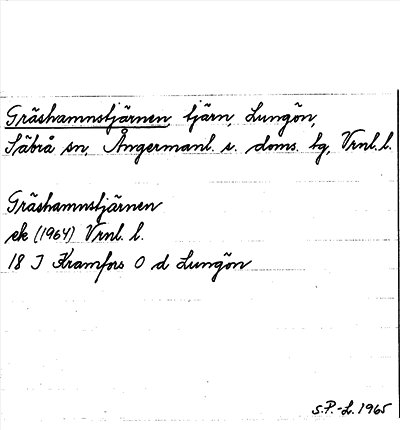 Gräshamnstjärnen, tjärn, Lungön,
Säbrå sn, Ångermanl. s. doms. bg, Vrnl. l.
Gräshamnstjärnen
ek (1964) Vrnl. l.
18 J Kramfors O d Lungön
S.P.-L. 1965